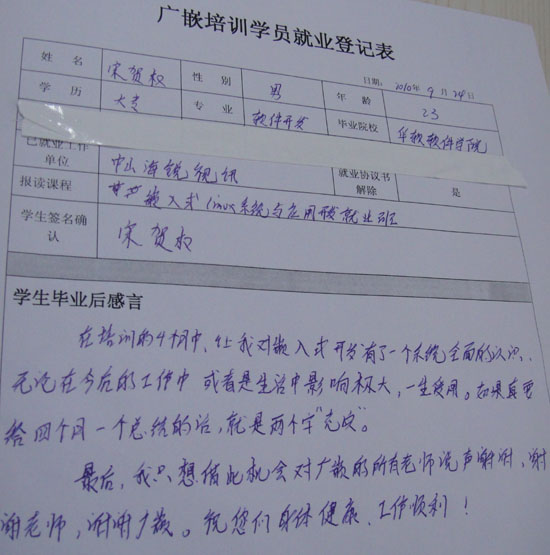 广嵌培训学员就业登记表
日期: 2010年9月24日
姓 名 宋贺权 性 别 男 年 龄 23
学 历 大专 专 业 软件开发 毕业院校 华软软件学院
已就业工作单位 中山海锐视讯 就业协议书解除 是
报读课程 嵌入式linux系统与应用开发就业班
学生签名确认 宋贺权
学生毕业后感言
在培训的4个月中,让我对嵌入式开发有了一个系统全面的认识,
无论在今后的工作中 或者是生活中影响极大,一生受用。如果真要
给四个月一个总结的话,就是两个字"充实"。
最后,我只想借此机会对广嵌的所有老师说声谢谢,谢
谢老师,谢谢广嵌。祝您们身体健康、工作顺利!